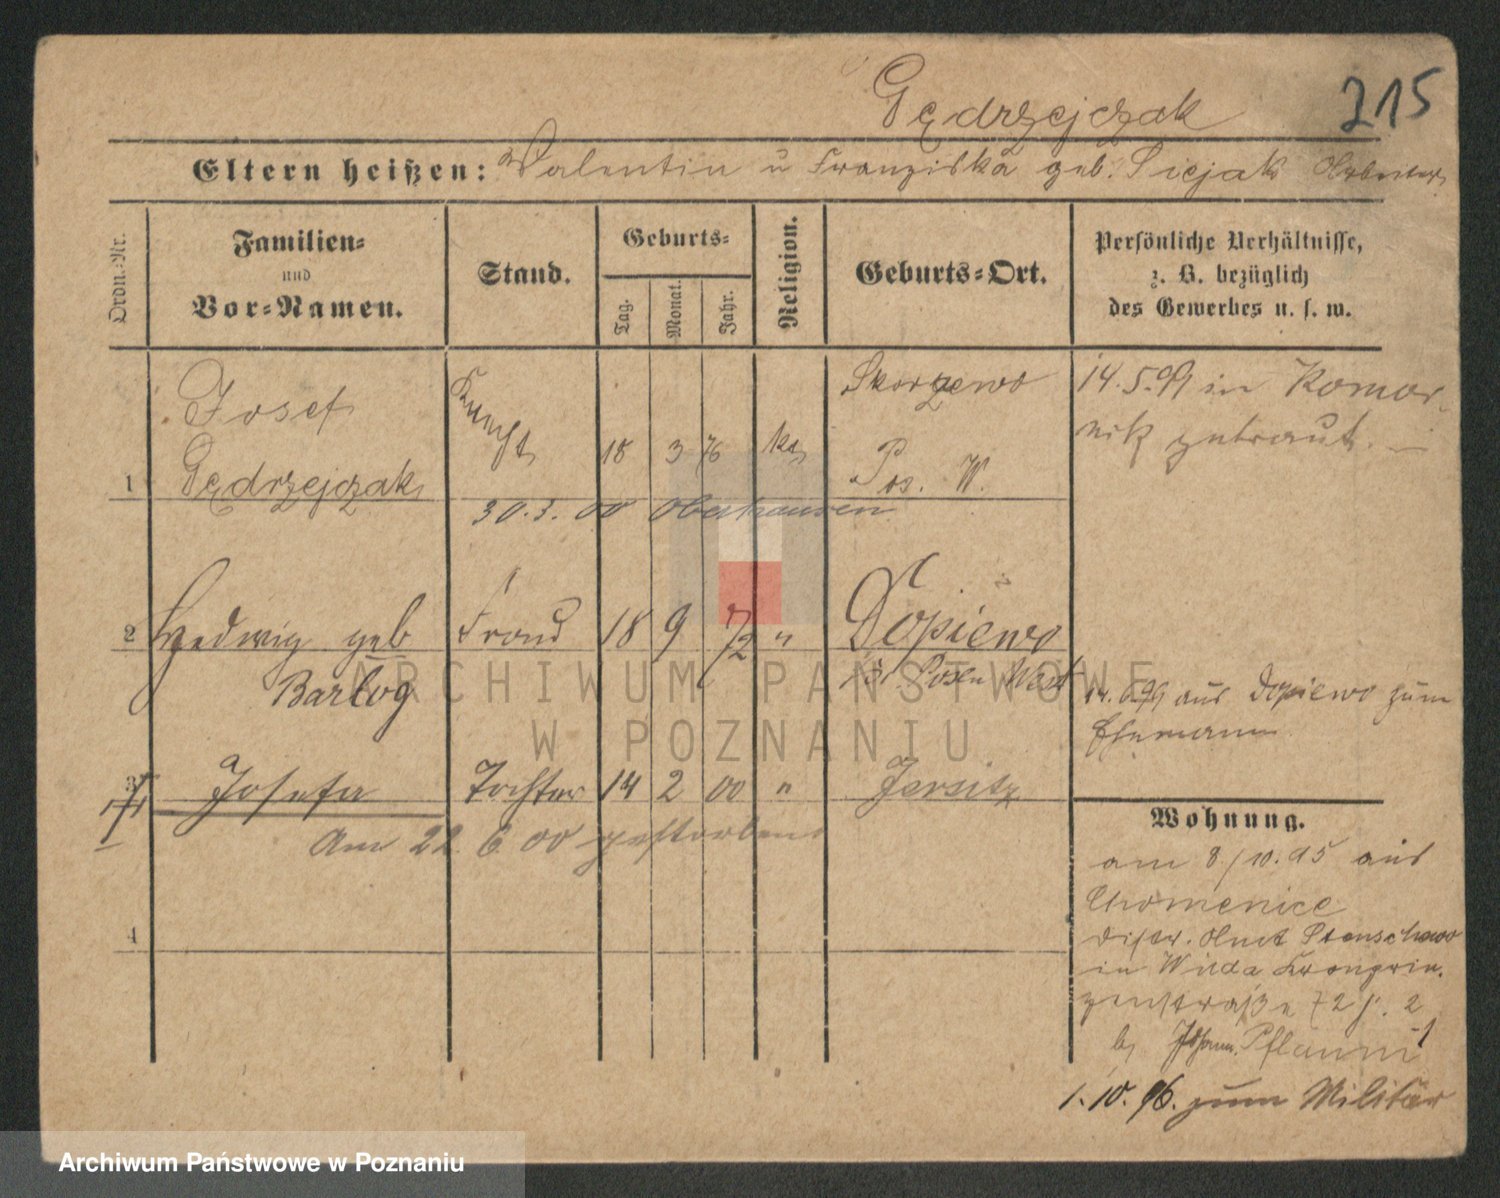 Jędrzejczak 215
Eltern heißen: Valentin u Franziska geb. Arbeiter
Ordn.-Nr.
Familien-
und
Vor-Namen.
Stand.
Geburts-
Tag.
Monat.
Jahr.
Religion.
Geburts-Ort.
Persönliche Verhältnisse,
z. B. bezüglich
des Gewerbes u. s. w.
1
Josef
Jędrzejczak
Knecht 18 3 76 kat
Skorzewo
Pos. W.
14.5.99 in Komor-
nik getraut.
30.3.00 Oberhausen
2 Hedwig geb
Bartog
Frau 18 9 72 "
Dopiewo
Kr. Posen West
14.6.99 aus Dopiewo zum
Ehemann
3 Josefa Tochter 14 2 00 " Jersitz
Am 22. 6. 00 gestorben
4
Wohnung.
am 8/10.95 aus
Chomenice
Distr. Amt Stenschewo
in Wilda Kronprin-
zenstraße 72
b. Johann Pflaum
1.10.96. zum Militär
ARCHIWUM PAŃSTWOWE
W POZNANIU
Archiwum Państwowe w Poznaniu